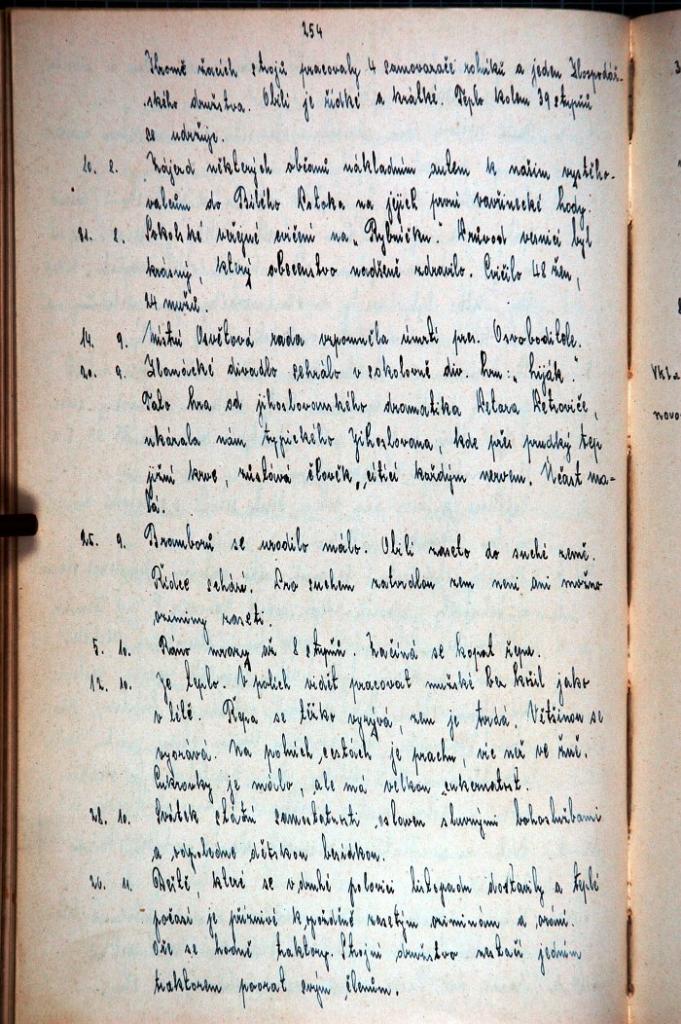 254
Kromě žacích strojů pracovaly 4 samovazače rolníků a jeden Hospodář-
ského družstva. Obilí je řídké a krátké. Teplo kolem 39 stupňů
se udržuje.
10. 8. Zájezd některých občanů nákladním autem k našim vystěho-
valcům do Bílého Potoka na jejich první vavřinecké hody.
31. 8. Sokolské veřejné cvičení na „Rybníčku." Průvod vesnicí byl
krásný, který obecenstvo nadšeně zdravilo. Cvičilo 48 žen,
24 mužů.
14. 9. Místní Osvětová rada vzpomněla úmrtí pres. Osvoboditele.
20. 9. Hanácké divadlo sehrálo v sokolovně div. hru: „ "
Tato hra od jihoslovanského dramatika Petara Petroviče,
ukázala nám typického Jihoslovana, kde přes prudký tep
jižní krve, zůstává člověk, cítící každým nervem. Účast ma-
lá.
25. 9. Bramborů se urodilo málo. Obilí zaseto do suché země.
Řídce schází. Pro suchem zatvrdlou zem není ani možno
ozimy zaseti.
5. 10. Ráno mrazy až 8 stupňů. Začíná se kopat řepa.
12. 10. Je teplo. V polích vidět pracovat mužské bez košil jako
v létě. Řepa se těžko vyrývá, zem je tvrdá. Většinou se
vyorává. Na polních cestách je prachu, víc než ve žně.
Cukrovky je málo, ale má velkou cukernatost.
28. 10. Svátek státní samostatnosti osloven slavnými bohoslužbami
a odpoledne dětskou besídkou.
26. 11. Deště, které se v druhé polovici listopadu dostavily a teplé
počasí je příznivé k zasetým ozimům a orání.
Oře se hodně traktory. Strojní družstvo nestačí jedním
traktorem poorat svým členům.
3
Vkla
novo